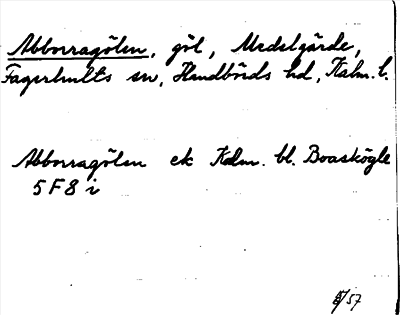 Abborragölen, göl, Medelgärde,
Fagerhults sn, Handbörds hd, Kalm. l.
Abborragölen ek Kalm. bl. Boaskögle
5 F 8 i
/57